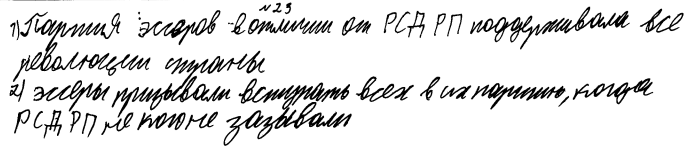 №23
1) Партия эсеров в отличии от РСДРП поддерживала все
революции страны
2) эсеры призывали вступать всех в их партию, когда
РСДРП не кого не зазывали